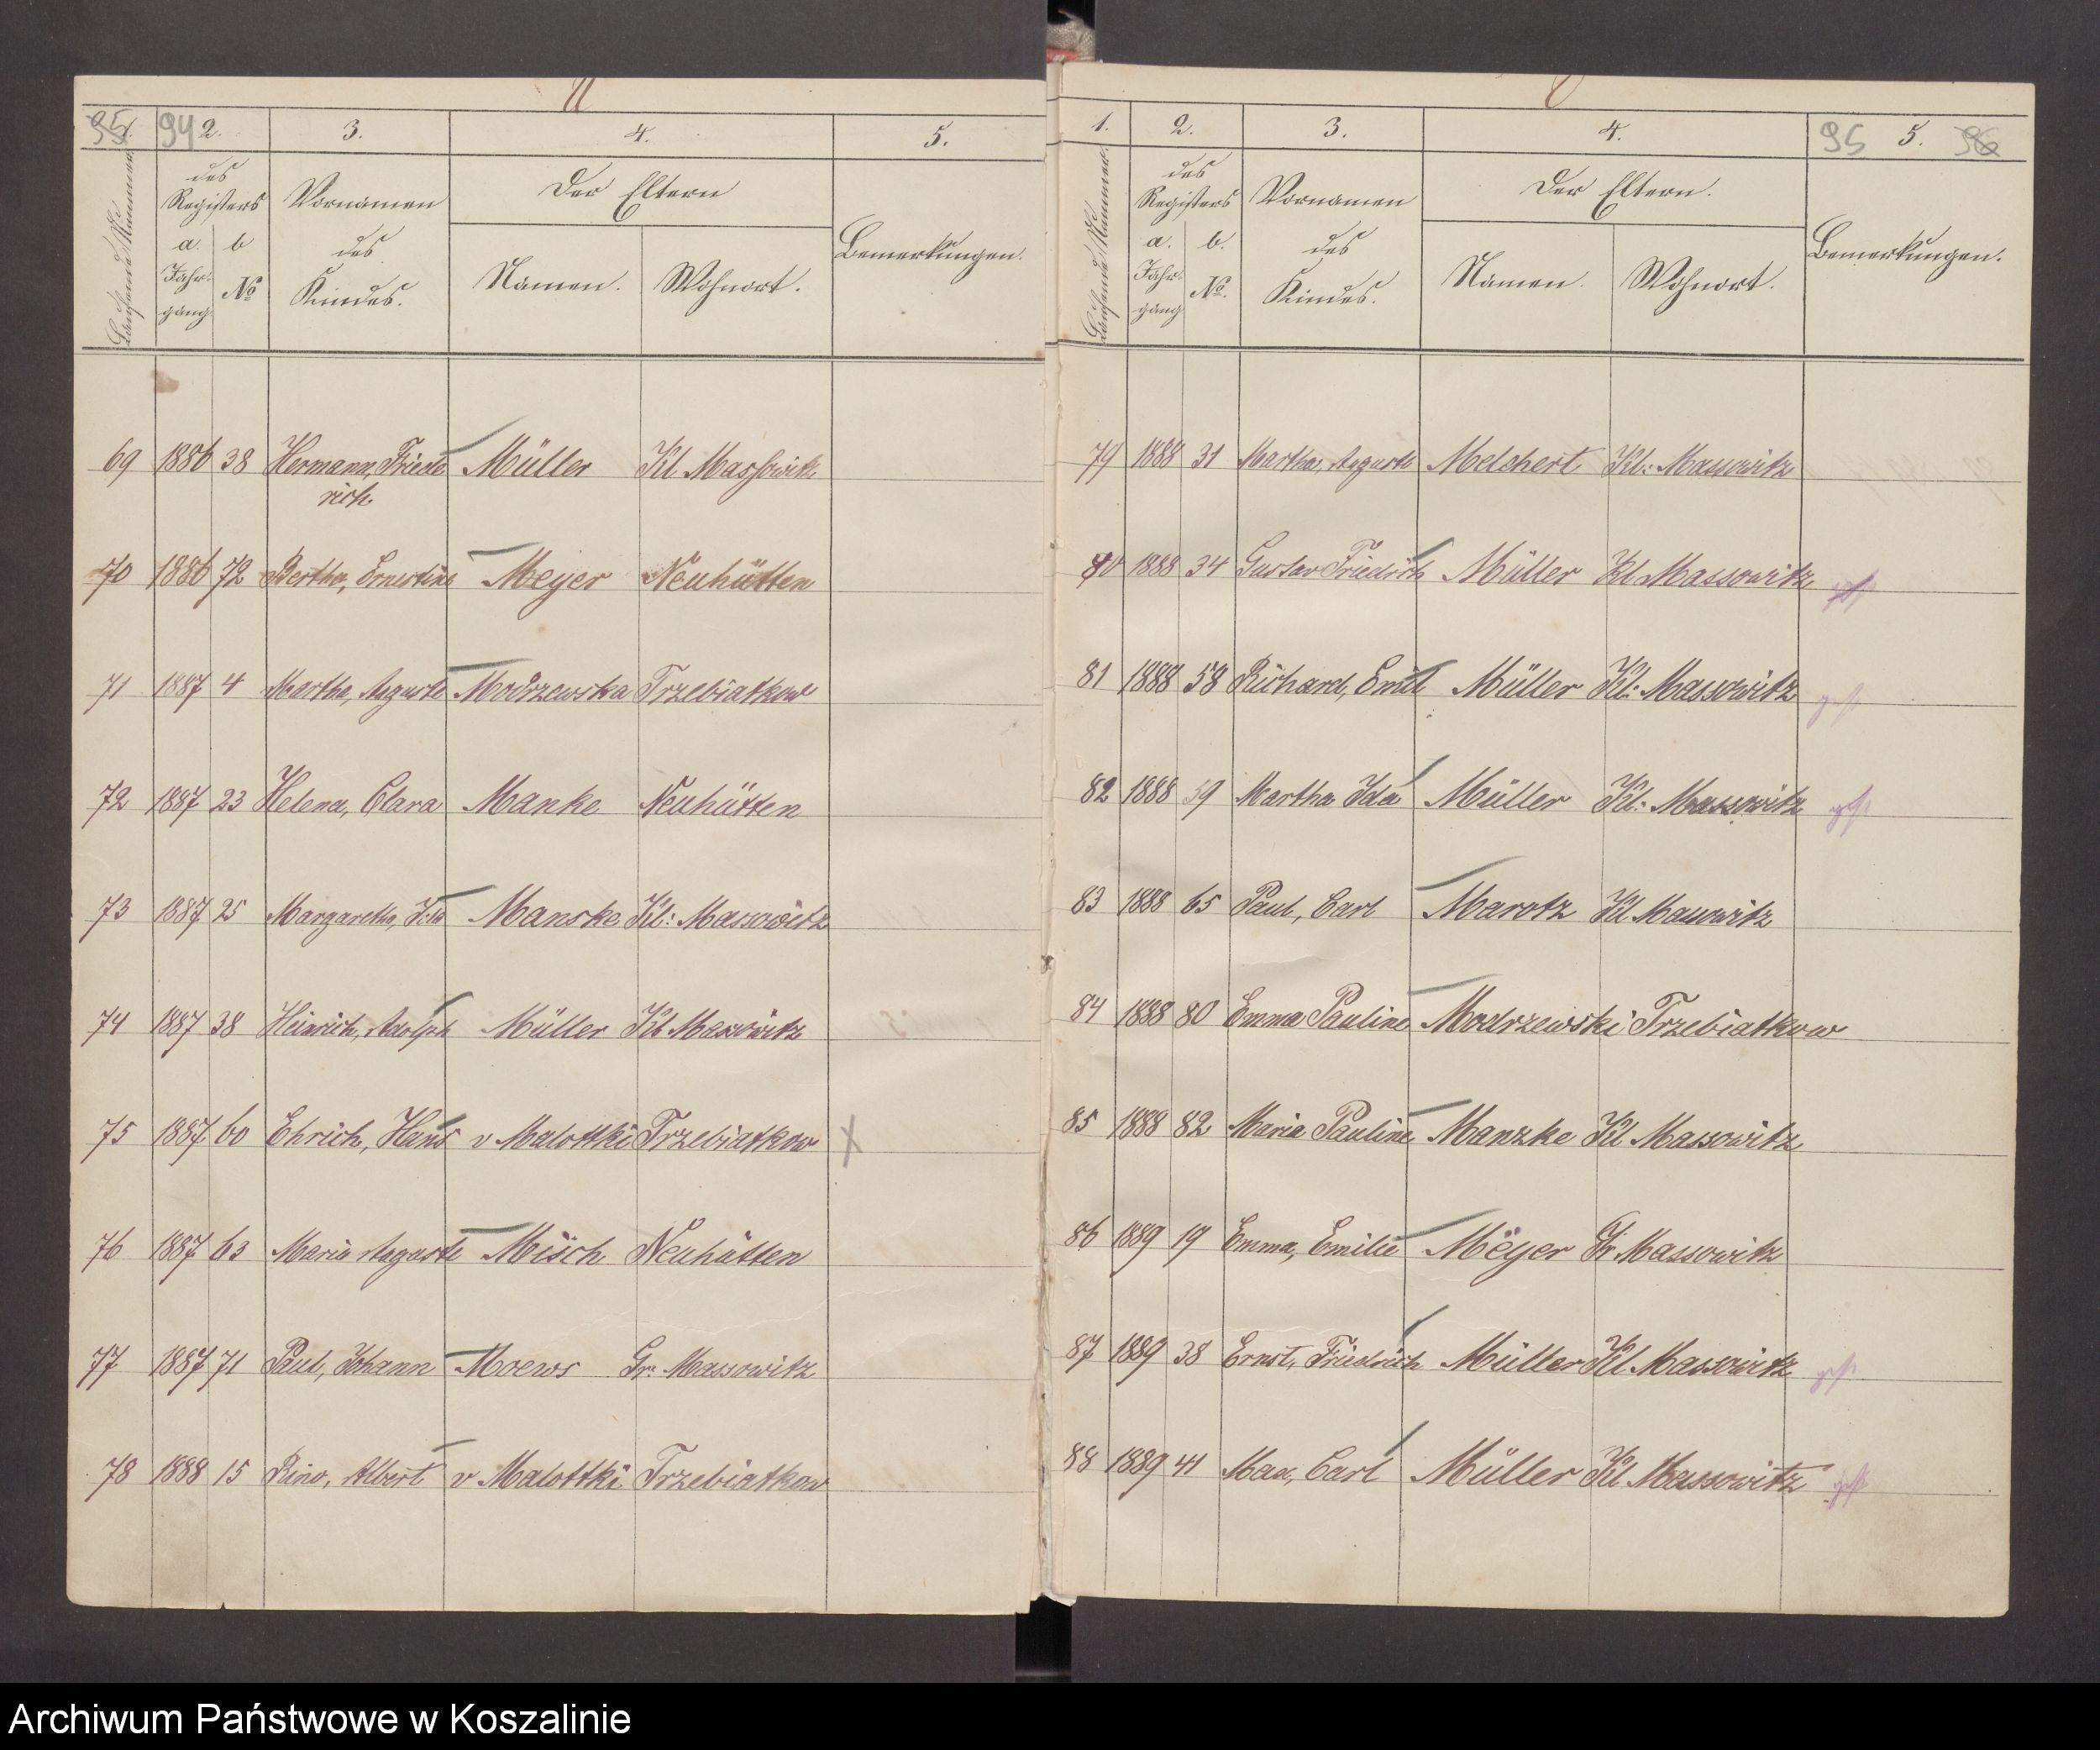 95 1. 94 2. 3. 4. 5.
Laufende Nummer.
des Registers
a. Jahrgang
b No
Vornamen des Kindes.
Der Eltern
Namen. Wohnort.
Bemerkungen.
69 1886 38 Hermann, Friede Müller Kl Massowitz
rich.
70 1886 72 Bertha, Ernestine Meyer Neuhütten
71 1887 4 Martha, Auguste Modrzewska Trzebiatkow
72 1887 23 Helena, Clara Manke Neuhütten
73 1887 25 Margaretha, Ida Manske Kl: Massowitz
74 1887 38 Heinrich, Adolph Müller Kl Massowitz
75 1887 60 Ehrich, Hans v Malottki Trzebiatkow X
76 1887 63 Maria Auguste Misch Neuhütten
77 1887 71 Paul, Johann Moews Gr. Massowitz
78 1888 15 Rino, Albert v Malottki Trzebiatkow
1. 2. 3. 4. 95 5. 96
Laufende Nummer.
des Registers
a. Jahrgang
b. No.
Vornamen des Kindes.
Der Eltern.
Namen. Wohnort.
Bemerkungen.
79 1888 31 Martha, Auguste Melchert Kl: Massowitz
80 1888 34 Gustav Friedrich Müller Kl Massowitz
81 1888 58 Richard, Emil Müller Kl: Massowitz
82 1888 59 Martha Ida Müller Kl: Massowitz
83 1888 65 Paul, Carl Marotz Kl Massowitz
84 1888 80 Emma Pauline Modrzewski Trzebiatkow
85 1888 82 Maria Pauline Manzke Kl Massowitz
86 1889 19 Emma, Emilie Meyer Gr Massowitz
87 1889 38 Ernst, Friedrich Müller Kl Massowitz
88 1889 41 Max, Carl Müller Kl Massowitz
Archiwum Państwowe w Koszalinie